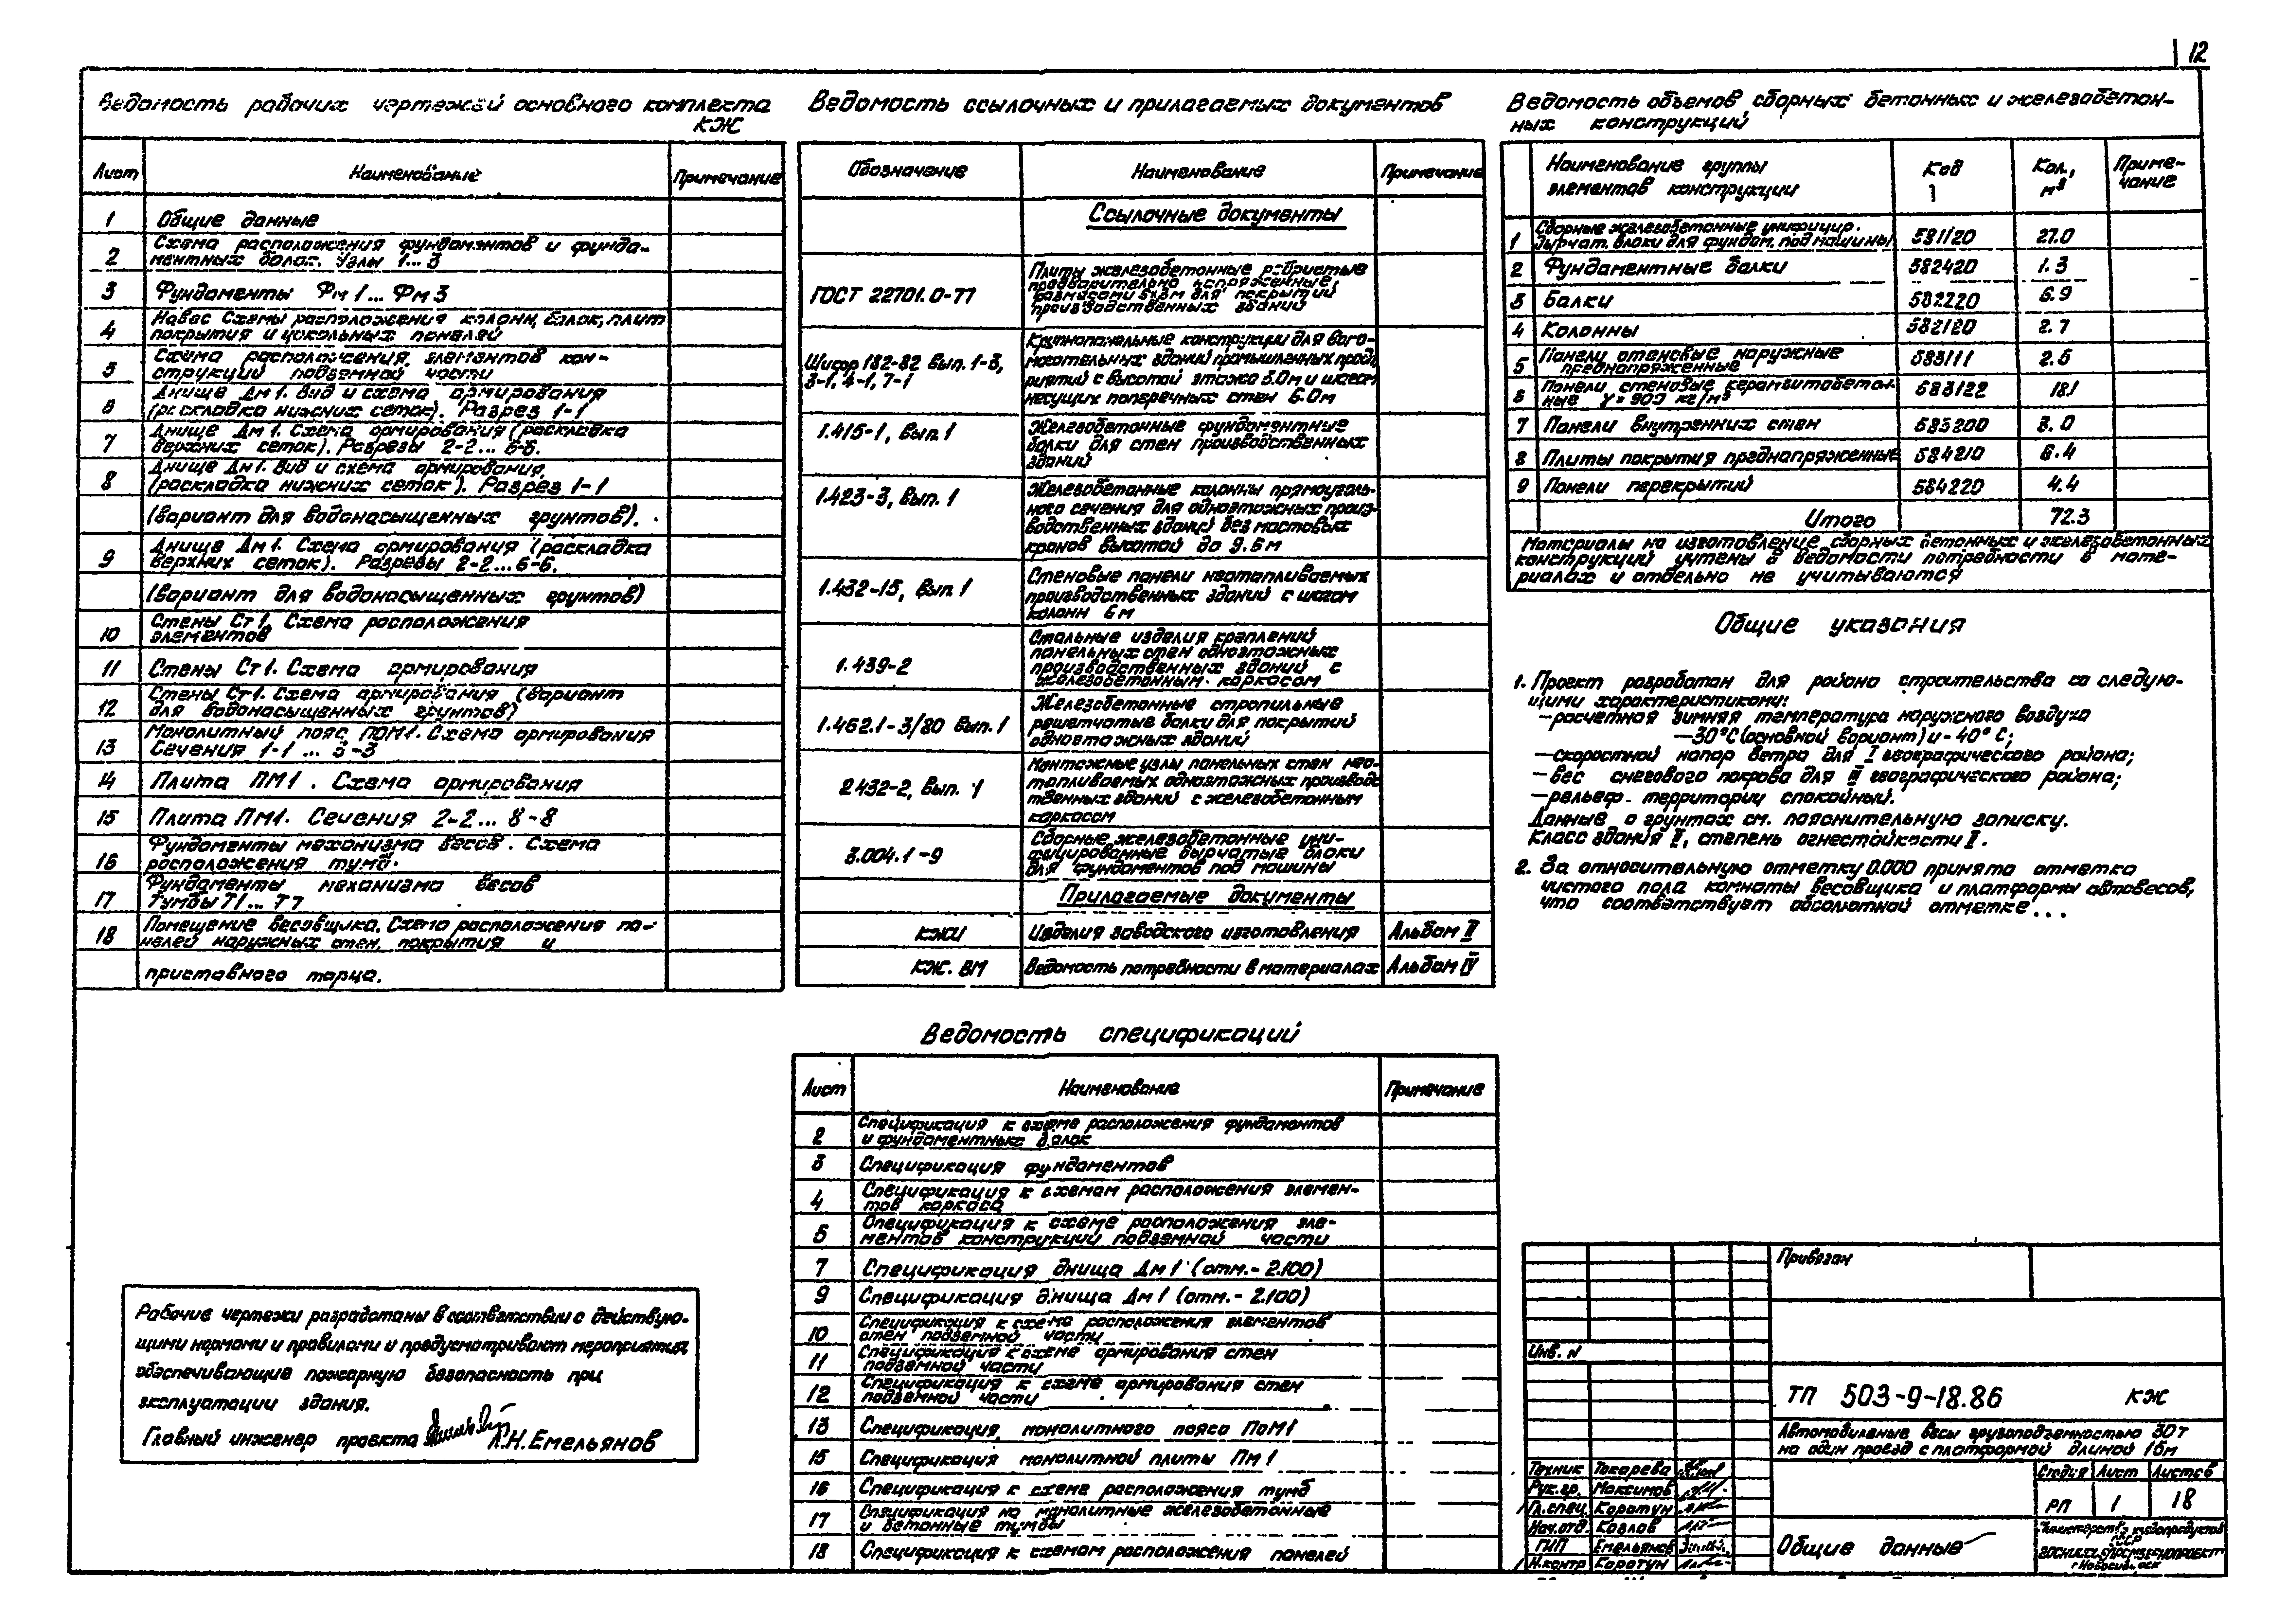 12
Ведомость рабочих чертежей основного комплекта
КЖ
Лист
Наименование
Примечание
1
Общие данные
2
Схема расположения фундаментов и фунда-
ментных балок. Узлы 1...3
3
Фундаменты Фм1...Фм3
4
Навес Схемы расположения колонн, балок, плит
покрытия и цокольных панелей
5
Схема расположения элементов кон-
струкций подземной части
6
Днище Дм1. Вид и схема армирования
(раскладка нижних сеток). Разрез 1-1
7
Днище Дм1. Схема армирования (раскладка
верхних сеток). Разрезы 2-2...6-6.
8
Днище Дм1. Вид и схема армирования,
(раскладка нижних сеток). Разрез 1-1
(вариант для водонасыщенных грунтов).
9
Днище Дм1. Схема армирования (раскладка
верхних сеток). Разрезы 2-2...6-6.
(вариант для водонасыщенных грунтов)
10
Стены Ст1. Схема расположения
элементов
11
Стены Ст1. Схема армирования
12
Стены Ст1. Схема армирования (вариант
для водонасыщенных грунтов)
13
Монолитный пояс ПОМ1. Схема армирования
Сечения 1-1...3-3
14
Плита ПМ1. Схема армирования
15
Плита ПМ1. Сечения 2-2...8-8
16
Фундаменты механизма весов. Схема
расположения тумб.
17
Фундаменты механизма весов
Тумбы Т1...Т7
18
Помещение весовщика. Схема расположения па-
нелей наружных стен, покрытия и
приставного торца.
Ведомость ссылочных и прилагаемых документов
Обозначение
Наименование
Примечание
Ссылочные документы
ГОСТ 22701.0-77
Плиты железобетонные ребристые
предварительно напряженные,
размерами 6х3м для покрытий
производственных зданий
Шифр 132-82 Вып. 1-3,
3-1, 4-1, 7-1
Крупнопанельные конструкции для вспо-
могательных зданий промышленных пред-
риятий с высотой этажа 3.0м и шагом
несущих поперечных стен 6.0м
1.415-1, Вып. 1
Железобетонные фундаментные
балки для стен производственных
зданий
1.423-3, Вып. 1
Железобетонные колонны прямоуголь-
ного сечения для одноэтажных произ-
водственных зданий без мостовых
кранов высотой до 9.6м
1.432-15, Вып. 1
Стеновые панели неотапливаемых
производственных зданий с шагом
колонн 6м
1.439-2
Стальные изделия креплений
панельных стен одноэтажных
производственных зданий с
железобетонным каркасом
1.462.1-3/80 Вып. 1
Железобетонные стропильные
решетчатые балки для покрытий
одноэтажных зданий
2.432-2, Вып. 1
Монтажные узлы панельных стен нео-
тапливаемых одноэтажных производс
твенных зданий с железобетонным
каркасом
3.004.1-9
Сборные железобетонные уни-
фицированные дырчатые блоки
для фундаментов под машины
Прилагаемые документы
КЖИ
Изделия заводского изготовления
Альбом II
КЖ. ВМ
Ведомость потребности в материалах
Альбом IV
Ведомость объемов сборных бетонных и железобетон-
ных конструкций
Наименование группы
элементов конструкции
Код
Кол.,
м³
Приме-
чание
1
Сборные железобетонные унифицир.
дырчат. блоки для фундам. под машины
581120
27.0
2
Фундаментные балки
582420
1.3
3
Балки
582220
6.9
4
Колонны
582120
2.7
5
Панели стеновые наружные
преднапряженные
583111
2.5
6
Панели стеновые керамзитобетон-
ные γ=900 кг/м³
583122
18.1
7
Панели внутренних стен
583200
3.0
8
Плиты покрытия преднапряженные
584210
6.4
9
Панели перекрытий
584220
4.4
Итого
72.3
Материалы на изготовление сборных бетонных и железобетонных
конструкций учтены в ведомости потребности в мате-
риалах и отдельно не учитываются
Общие указания
1. Проект разработан для района строительства со следую-
щими характеристиками:
—расчетная зимняя температура наружного воздуха
—30°С (основной вариант) и -40°С;
—скоростной напор ветра для I географического района;
—вес снегового покрова для III географического района;
—рельеф территории спокойный.
Данные о грунтах см. пояснительную записку.
Класс здания II, степень огнестойкости II.
2. За относительную отметку 0.000 принята отметка
чистого пола комнаты весовщика и платформы автовесов,
что соответствует абсолютной отметке...
Ведомость спецификаций
Лист
Наименование
Примечание
2
Спецификация к схеме расположения фундаментов
и фундаментных балок
3
Спецификация фундаментов
4
Спецификация к схемам расположения элемен-
тов каркаса
5
Спецификация к схеме расположения эле-
ментов конструкций подземной части
7
Спецификация днища Дм1 (отм.-2.100)
9
Спецификация днища Дм1 (отм.-2.100)
10
Спецификация к схеме расположения элементов
стен подземной части
11
Спецификация к схеме армирования стен
подземной части
12
Спецификация к схеме армирования стен
подземной части
13
Спецификация монолитного пояса ПоМ1
15
Спецификация монолитной плиты Пм1
16
Спецификация к схеме расположения тумб
17
Спецификация на монолитные железобетонные
и бетонные тумбы
18
Спецификация к схемам расположения панелей
Рабочие чертежи разработаны в соответствии с действую-
щими нормами и правилами и предусматривают мероприятия
обеспечивающие пожарную безопасность при
эксплуатации здания.
Главный инженер проекта Л.Н.Емельянов
Привязан
Инв. N
ТП 503-9-18.86 КЖ
Автомобильные весы грузоподъемностью 30т
на один проезд с платформой длиной 15м
Техник Токарева
Рук.гр. Максимов
Гл.спец. Коротун
Нач.отд. Козлов
ГИП Емельянов
Н.контр Коротун
Стадия Лист Листов
РП 1 18
Общие данные
Министерство хлебопродуктов
СССР
г.Новосибирск